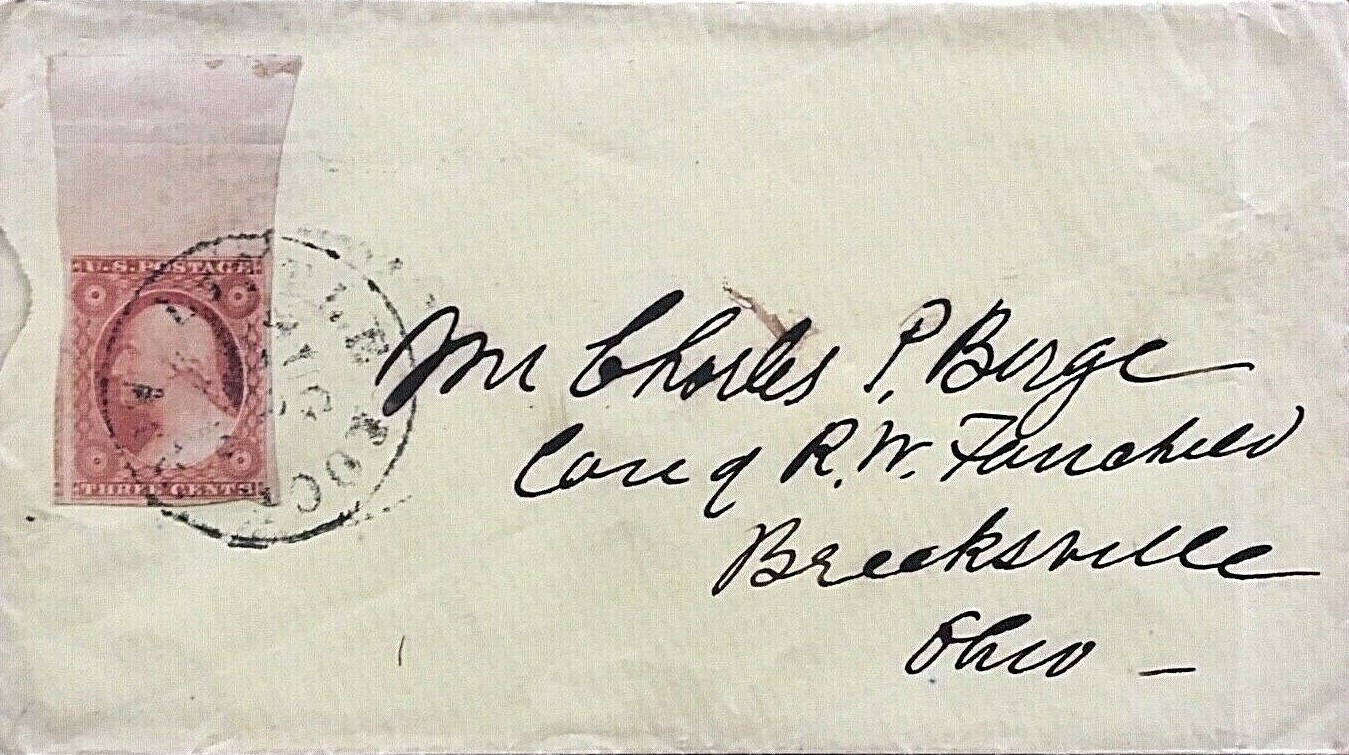 U.S. POSTAGE
THREE CENTS
Mr Charles P. Burge
Care of R. W. Fairchild
Brecksville
Ohio —